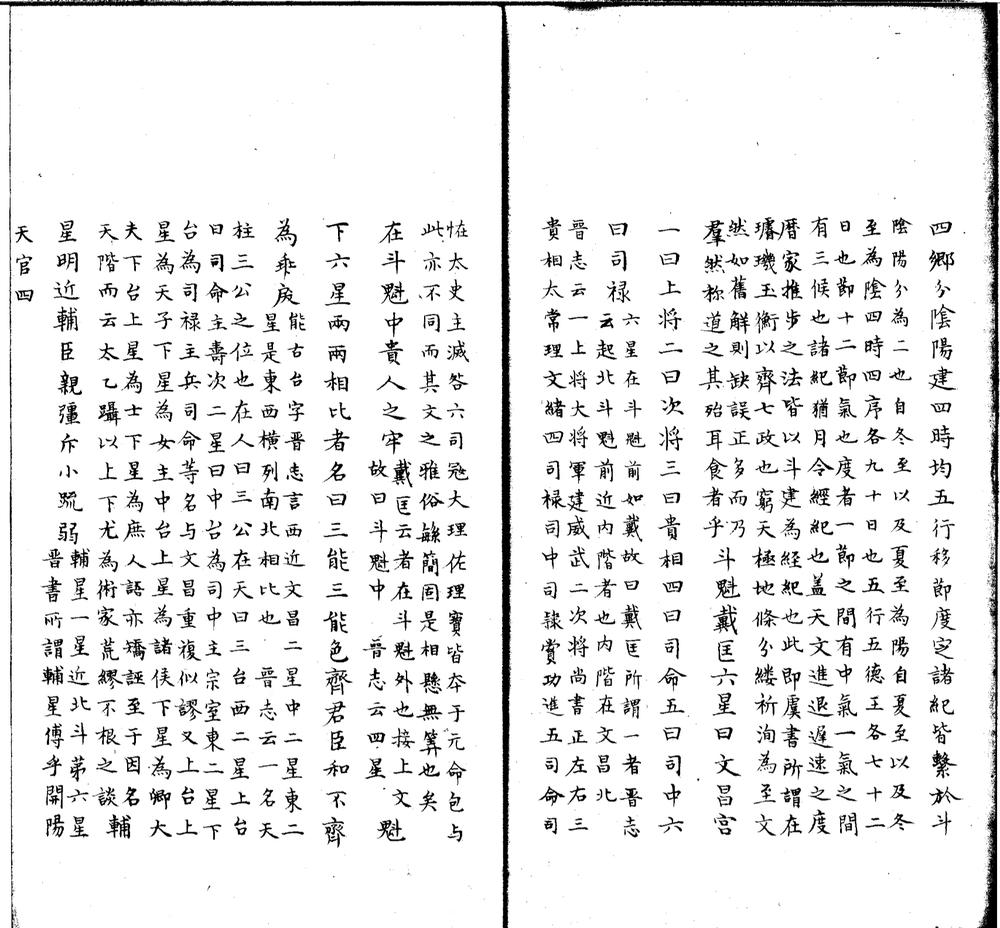 四鄉分陰陽建四時均五行移節度定諸紀皆繫於斗
陰陽分為二也自冬至以及夏至為陽自夏至以及冬
至為陰四時四序各九十日也五行五德王各七十二
日也節十二節氣也度者一節之間有中氣一氣之間
有三候也諸紀猶月令經紀也蓋天文進退遲速之度
曆家推步之法皆以斗建為經紀也此即虞書所謂在
璿璣玉衡以齊七政也窮天極地條分縷析洵為至文
然如舊解則缺誤正多而乃
羣然称道之其殆耳食者乎斗魁戴匡六星曰文昌宮
一曰上将二曰次将三曰貴相四曰司命五曰司中六
曰司禄六星在斗魁前如戴故曰戴匡所謂一者晋志
云起北斗魁前近内階者也内階在文昌北
晉志云一上将大将軍建威武二次将尚書正左右三
貴相太常理文緒四司禄司中司隷賞功進五司命司
怪太史主滅咎六司冦大理佐理寶皆夲于元命包与
此亦不同而其文之雅俗緐簡固是相懸無筭也矣
在斗魁中貴人之牢戴匡云者在斗魁外也接上文
故曰斗魁中 晉志云四星魁
下六星兩兩相比者名曰三能三能色齊君臣和不齊
為乖戾能古台字晋志言西近文昌二星中二星東二
星是東西横列南北相比也 晋志云一名天
柱三公之位也在人曰三公在天曰三台西二星上台
曰司命主壽次二星曰中台為司中主宗室東二星下
台為司禄主兵司命等名与文昌重複似謬又上台上
星為天子下星為女主中台上星為諸侯下星為卿大
夫下台上星為士下星為庶人語亦矯誣至于因名
天階而云太乙躡以上下尤為術家荒繆不根之談輔
星明近輔臣親彊斥小䟽弱輔星一星近北斗第六星
晋書所謂輔星傅乎開陽
天官四